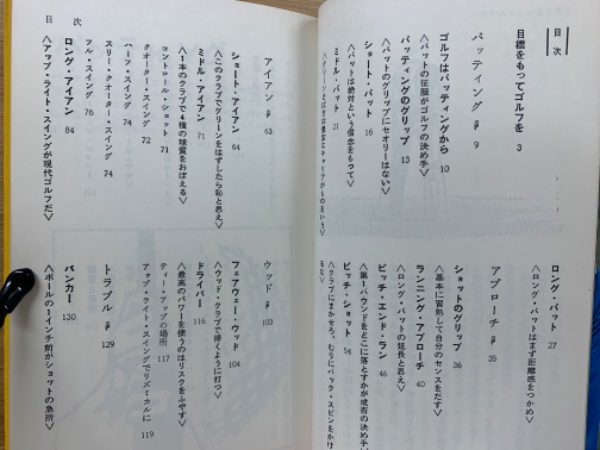 目次
目標をもってゴルフを 3
パッティング 9
ゴルフはパッティングから 10
〈パットの征服がゴルフの決め手〉
パッティングのグリップ 13
〈パットのグリップにセオリーはない〉
ショート・パット 16
〈パットは絶対という信念をもって〉
ミドル・パット 21
ロング・パット 27
〈ロング・パットはまず距離感をつかめ〉
アプローチ 35
ショットのグリップ 36
〈基本に習熟して自分のセンスをだす〉
ランニング・アプローチ 40
〈ロング・パットの延長と思え〉
ピッチ・エンド・ラン 46
〈第一バウンドをどこに落とすかが成否の決め手〉
ピッチ・ショット 54
〈クラブにまかせろ、むりにバック・スピンをかけるな〉
目次
アイアン 63
ショート・アイアン 64
〈このクラブでグリーンをはずしたら恥と思え〉
ミドル・アイアン 71
〈1本のクラブで4種の球質をおぼえる〉
コントロール・ショット 71
クオーター・スイング 72
ハーフ・スイング 74
スリー・クオーター・スイング 74
フル・スイング 76
ロング・アイアン 84
〈アップ・ライト・スイングが現代ゴルフだ〉
ウッド 103
フェアウェー・ウッド 104
〈ウッド・クラブで掃くように打つ〉
ドライバー 116
〈最高のパワーを使うのはリスクをふやす〉
ティー・アップの場所 117
アップ・ライト・スイングでリズミカルに 119
トラブル 129
バンカー 130
〈ボールの1インチ前がショットの急所〉